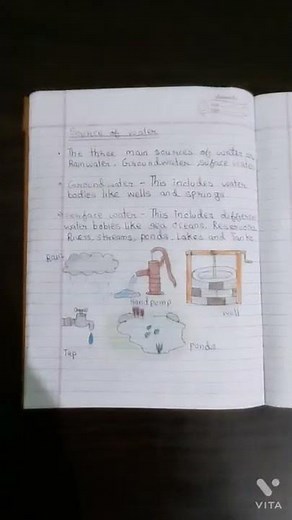 Source of water
The three main sources of water are
Rainwater - Groundwater surface water
Ground water - This includes water
bodies like wells and springs.
surface water - This includes different
water bobies like sea oceans, Reservoirs
Rivers, streams, ponds, Lakes and Tanks
Rain
Hand pump
Well
Tap
Ponds
VITA